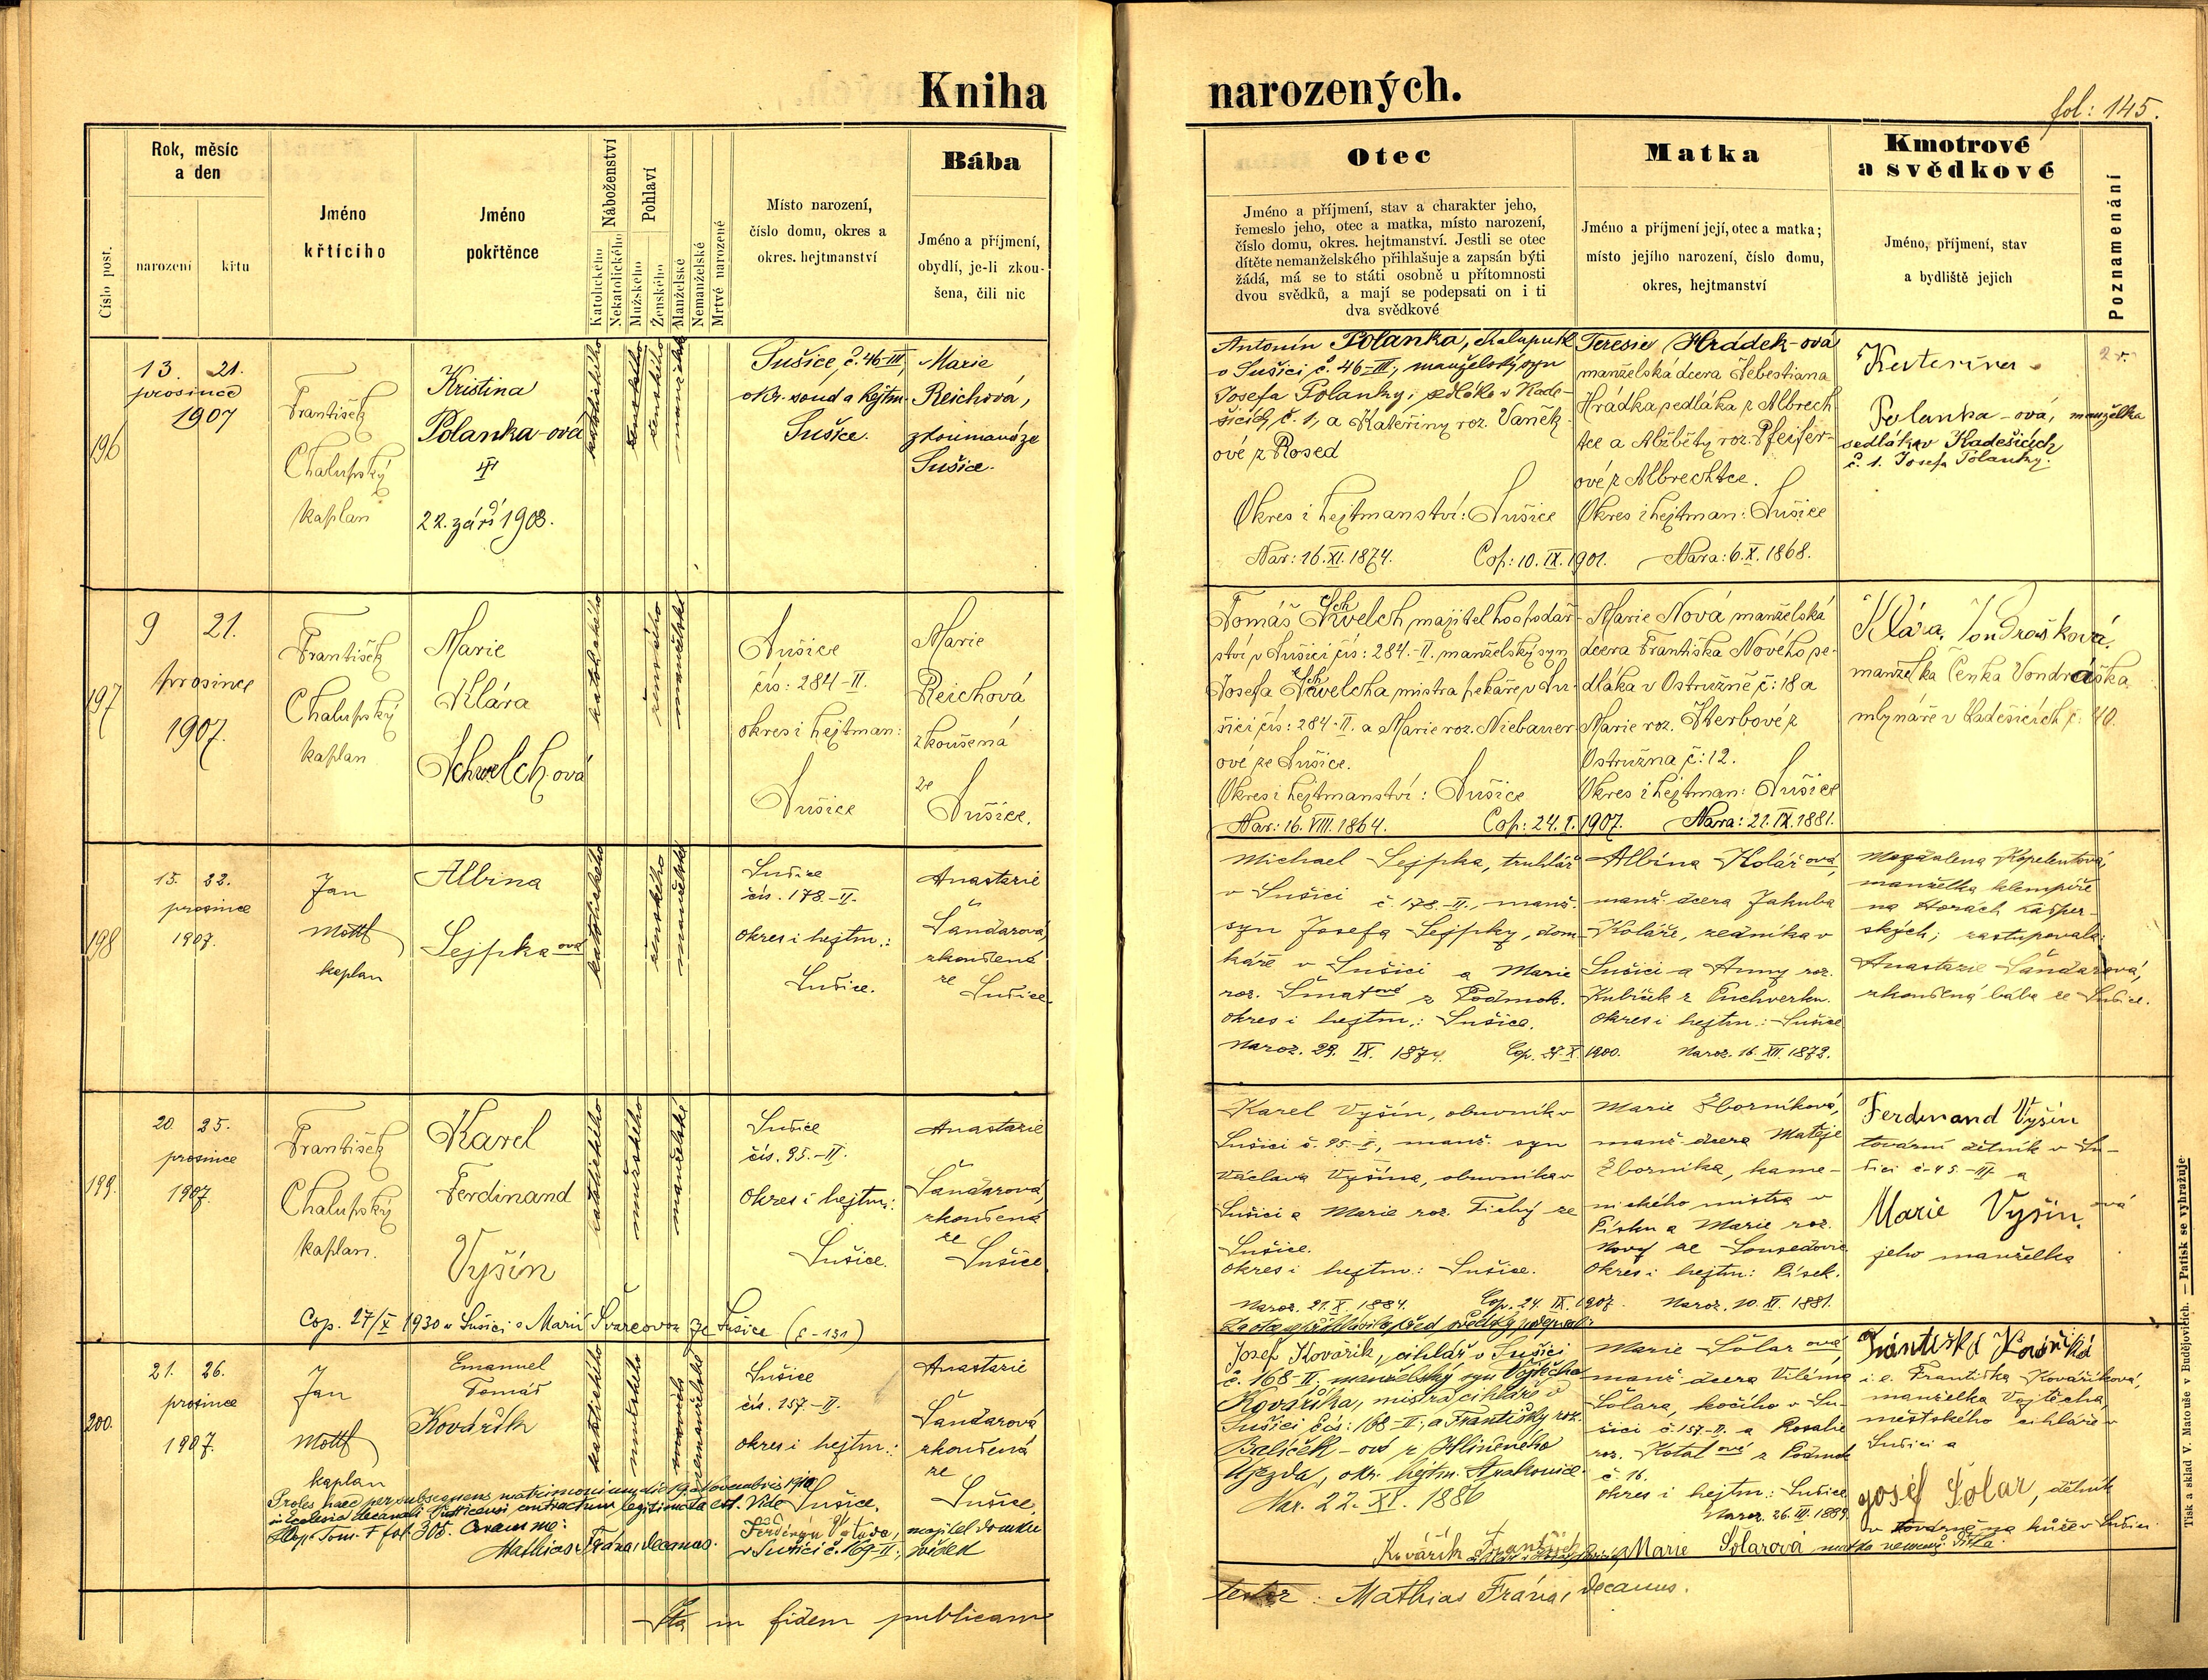 Kniha narozených.
fol: 145.
Číslo post.
Rok, měsíc
a den
narození
křtu
Jméno
křtícího
Jméno
pokřtěnce
Náboženství
Katolického
Nekatolického
Pohlaví
Mužského
Ženského
Manželské
Nemanželské
Mrtvě narozené
Místo narození,
číslo domu, okres a
okres. hejtmanství
Bába
Jméno a příjmení,
obydlí, je-li zkou-
šena, čili nic
Otec
Jméno a příjmení, stav a charakter jeho,
řemeslo jeho, otec a matka, místo narození,
číslo domu, okres. hejtmanství. Jestli se otec
dítěte nemanželského přihlašuje a zapsán býti
žádá, má se to státi osobně u přítomnosti
dvou svědků, a mají se podepsati on i ti
dva svědkové
Matka
Jméno a příjmení její, otec a matka;
místo jejího narození, číslo domu,
okres, hejtmanství
Kmotrové
a svědkové
Jméno, příjmení, stav
a bydliště jejich
Poznamenání
196
13. 21.
prosince
1907
František
Chalupský
kaplan
Kristina
Polanka-ová
III
22. září 1908.
katolického
ženského
manželské
Sušice, č. 46-III,
okr. soud a hejtm.
Sušice.
Marie
Reichová,
zkoumaná ze
Sušice.
Antonín Polanka, chalupník
v Sušici, č. 46-III, manželský syn
Josefa Polanky, sedláka v Kade-
šicích, č. 1, a Kateřiny roz. Vaněk-
ové z Rosed
Okres i hejtmanství: Sušice
Nar: 16. XI. 1874. Cop: 10. IX. 1901.
Teresie Hrádek-ová
manželská dcera Šebestiana
Hrádka sedláka z Albrech
tce a Alžběty roz. Pfeifer-
ové z Albrechtce.
Okres i hejtman: Sušice
Nara: 6. X. 1868.
Kateřina
Polanka-ová, manželka
sedláka v Kadešicích
č. 1. Josefa Polanky.
197
9 21.
prosince
1907.
František
Chalupský
kaplan
Marie
Klára
Schwelch-ová
katolického
ženského
manželské
Sušice
čís: 284-II.
okres i hejtman:
Sušice
Marie
Reichová
zkoušená
ze
Sušice.
Tomáš Schwelch, majitel hospodář-
ství v Sušici čís: 284.-II. manželský syn
Josefa Schwelcha mistra pekaře v Su-
šici čís: 284-II. a Marie roz. Niebauer-
ové ze Sušice.
Okres i hejtmanství: Sušice
Nar: 16. VIII. 1864. Cop: 24. I. 1907.
Marie Nová manželská
dcera Františka Nového se-
dláka v Ostružně č: 18 a
Marie roz. Kerbové z
Ostružna č: 12.
Okres i hejtman: Sušice
Nara: 21. IX. 1881.
Klára Vondrašková.
manželka Čeňka Vondráška
mlynáře v Kadešicích č: 40.
198
15. 22.
prosince
1907.
Jan
Mottl
kaplan
Albina
Sejpka ová
katolického
ženského
manželské
Sušice
čís. 178.-II.
Okres i hejtm.:
Sušice.
Anastazie
Šandarová,
zkoušená
ze Sušice.
Michael Sejpka, truhlář
v Sušici č. 178.-II., manž.
syn Josefa Sejpky, dom-
káře v Sušici a Marie
roz. Šmatové z Podmok.
Okres i hejtm.: Sušice.
Naroz. 29. IX. 1874. Cop. 29. X. 1900.
Albína Kolářová,
manž. dcera Jakuba
Koláře, zedníka v
Sušici a Anny roz.
Kubíček z Puchverku.
Okres i hejtm.: Sušice
Naroz. 16. XII. 1872.
Magdalena Kopelentová,
manželka klempíře
na Horách Kašper-
ských; zastupovala:
Anastazie Šandarová,
zkoušená bába ze Sušice.
199.
20 25.
prosince
1907.
František
Chalupský
kaplan.
Karel
Ferdinand
Vyšín
katolického
mužského
manželské
Sušice
čís. 95.-II.
Okres i hejtm.:
Sušice.
Anastazie
Šandarová,
zkoušená
ze
Sušice.
Cop. 27/X 1930 v Sušici s Marií Švarcovou ze Sušice (č-131)
Karel Vyšín, obuvník v
Sušici č. 95.-II., manž. syn
Václava Vyšína, obuvníka v
Sušici a Marie roz. Tichý ze
Sušice.
Okres i hejtm.: Sušice.
Naroz. 21. X. 1884. Cop. 24. IX. 1907.
Marie Zborníková,
manž. dcera Matěje
Zborníka, kame-
nického mistra v
Písku a Marie roz.
Nový ze
Okres i hejtm: Písek.
Naroz. 10. XI. 1881.
Ferdinand Vyšín
tovární dělník v Su-
šici č. 45.-III. a
Marie Vyšínová
jeho manželka
200.
21. 26.
prosince
1907.
Jan
Mottl
kaplan
Emanuel
Tomáš
Kovářík
katolického
mužského
nemanželské
Sušice
čís. 157-II.
Okres i hejtm.:
Sušice.
Anastazie
Šandarová
zkoušená
ze
Sušice
Proles haec per subsequens matrimonium die 19. Novembris 1910
in Ecclesia decanali Sutticensi contractum legitimata est. Vide
Cop. Tom. F fol. 305. Coram me:
Mathias Frána, decanus.
Ferdinand
v Sušici č. 169-II.,
majitel domku
svědek
Josef Kovářík, cihlář v Sušici
č. 168-II. manželský syn Vojtěcha
Kováříka, mistra cihláře v
Sušici čís: 168-II., a Františky roz.
Balíček-ové z Hliněného
Újezda, okr. hejtm. Strakonice.
Nar. 22. XI. 1886
Marie Šolar ová,
manž. dcera Viléma
Šolara, kočího v Su-
šici č. 157-II. a Rosalie
roz. Kotalové z Podmok
č. 16.
Okres i hejtm.: Sušice
Naroz. 26. III. 1889.
i. e. Františka Kováříková,
manželka Vojtěcha,
městského cihláře v
Sušici a
Josef Šolar, dělník
v továrně na kůže v Sušici.
Kovářík František
Marie Šolarová matka nemanž. dítka.
Ita in fidem publicam
testor: Mathias Frána, decanus.
Tisk a sklad V. Matouše v Budějovicích. — Patisk se vyhražuje